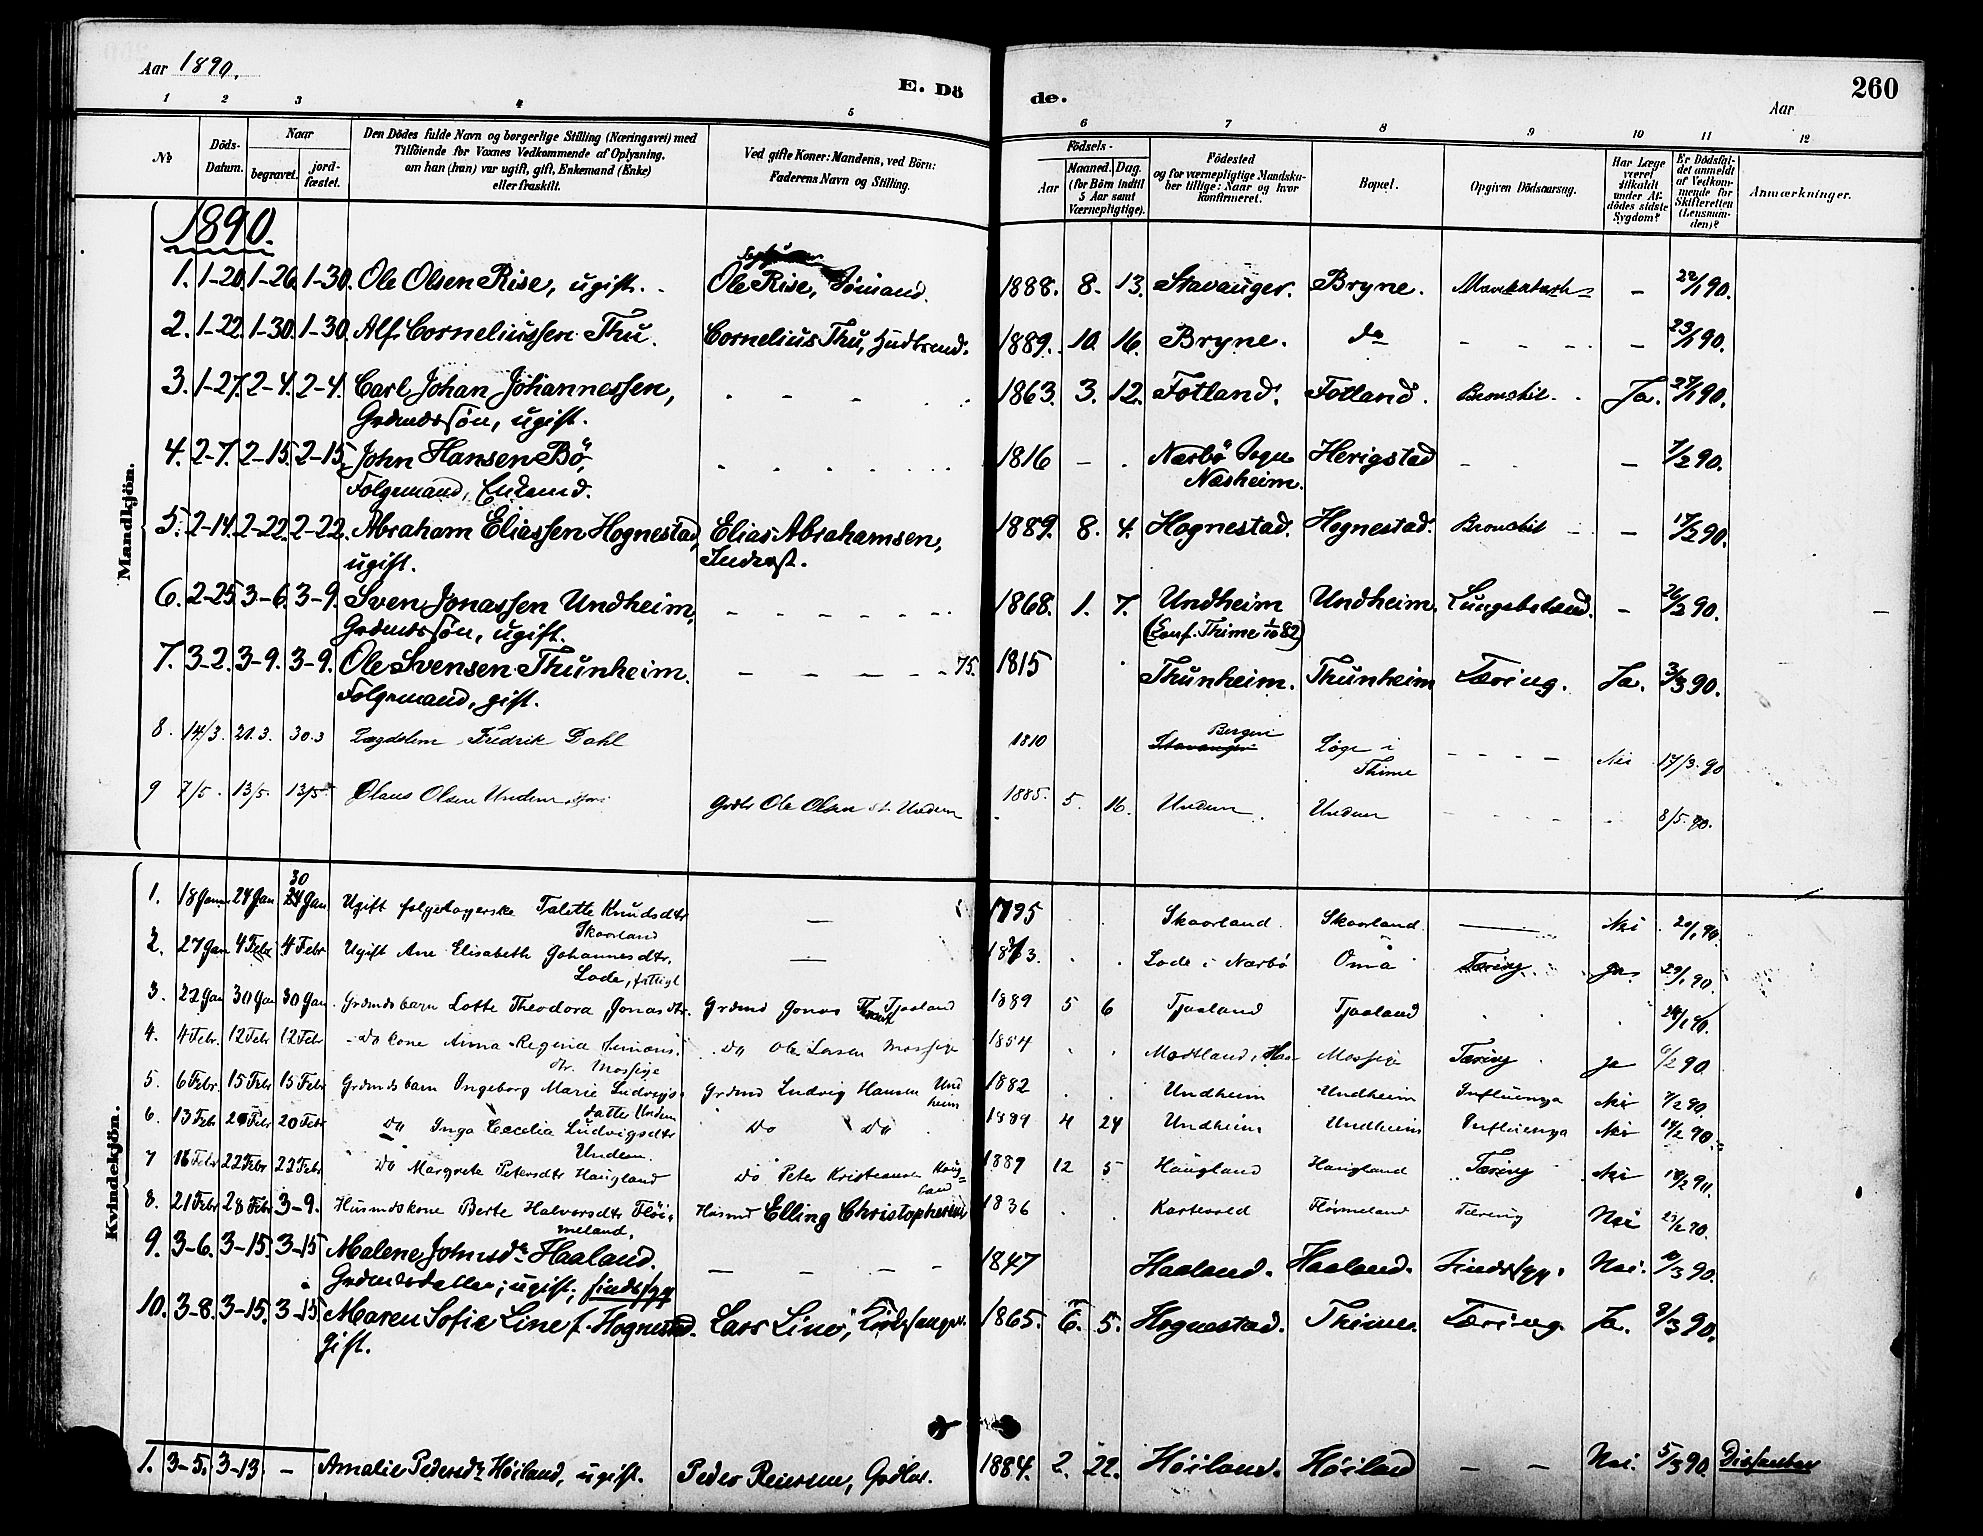 Aar 1890.
E. Dö
de.
Aar
260
1 2 3 4 5 6 7 8 9 10 11 12
No
Döds-Datum.
Naar
begravet.
jord-fæstet.
Den Dödes fulde Navn og borgerlige Stilling (Næringsvei) med
Tilföiende for Voxnes Vedkommende af Oplysning,
om han (hun) var ugift, gift, Enkemand (Enke)
eller fraskilt.
Ved gifte Koner: Mandens, ved Börn:
Faderens Navn og Stilling.
Födsels-
Aar
Maaned. Dag.
(for Börn indtil
5 Aar samt
Værnepligtige).
Födested
og for værnepligtige Mandskaber tillige: Naar og hvor
konfirmeret.
Bopæl.
Opgiven Dödsaarsag.
Har Læge
været
tilkaldt
under Afdödes sidste
Sygdom?
Er Dödsfaldet anmeldt
af Vedkommende for
Skifteretten
(Lensmanden)?
Anmærkninger.
Mandkjön.
1890.
1. 1-20. 1-26. 1-30. Ole Olsen Rise, ugift. Ole Rise, 1888. 8. 13. Stavanger. Bryne. – 22/1 90.
2. 1-22. 1-30. 1-30. Alf Corneliussen Thu. Cornelius Thu, 1889. 10. 16. Bryne. do – 23/1 90.
3. 1-27. 2-4. 2-4. Carl Johan Johannessen, 1863. 3. 12. Fotland. Fotland. Bronchit. Ja. 27/1 90.
Grdmdssön, ugift.
4. 2-7. 2-15. 2-15. John Hansen Bö, 1816 – Nærbö Sogn Herigstad – 7/2 90.
Folgemand, Enkemd. Næsheim.
5. 2-14. 2-22. 2-22. Abraham Eliassen Hognestad, Elias Abrahamsen, 1889. 8. 4. Hognestad. Hognestad. Bronchit – 17/2 90.
ugift. Inderst.
6. 2-25. 3-6. 3-9. Sven Jonassen Undheim, 1868. 1. 7. Undheim Undheim. – 26/2 90.
Grdmdssön, ugift. (Conf. Thime 1/10 82)
7. 3-2. 3-9. 3-9. Ole Svensen Thunheim. 75. 1815 Thunheim. Thunheim Tæring. Ja. 3/3 90.
Folgemand, gift.
8. 14/3. 21.3. 30.3 Lægdslem Fredrik Dahl 1810 Bergen Løge i Nei 17/3. 90
Thime
9 7/5. 13/5. 13/5 Olaus Olsen Undem Ole Olsen Undem 1885. 5. 16. Undem Undem 8/5. 90.
Kvindekjön.
1. 18 Jan 24 Jan 30 Jan Ugift Talette Knudsdtr 1795 Skaarland Skaarland Nei 20/1 90.
Skaarland
2. 27 Jan 4 Febr 4 Febr Ugift Ane Elisabeth Johannesdtr. Lode i Nærbö Oma Tæring Ja 29/1 90.
Lode, fattigl
3. 22 Jan 30 Jan 30 Jan Grdmdsbarn Lotte Theodora Jonasdtr. Grdmd Jonas Tjaaland 1889 5 6 Tjaaland Tjaaland 24/1 90.
4. 4 Febr. 12 Febr 12 Febr Do kone Anna Regina Simons- Do Ole Larsen Mossige 1854 Mossige Tæring ja 6/2 90
dtr. Mossige
5. 6 Febr. 15 Febr 15 Febr Grdmdsbarn Ingeborg Marie Ludvigs- Grdmd Ludvig Hansen Und 1882 Undheim Undheim Influenza Nei 7/2 90.
datter Undem heim
6. 13 Febr 20 Febr 20 Febr Do Inga Cecelia Ludvigsdtr Do Do 1889 4 24 Undheim Undheim Influenza Nei 14/2 90.
Undem.
7 16 Febr 22 Febr 22 Febr Do Margrete Petersdtr Haugland Do Peter Kristensen Haug- 1889 12 5 Haugland Haugland Tæring Nei 18/2 90.
land
8. 21 Febr 28 Febr 3-9. Husmdskone Berte Halvorsdtr Flöi- Husmd Elling Christophersen 1836 Flöimeland Tæring Nei 90.
meland.
9. 3-6. 3-15. 3-15 Malene Johnsdr Haaland. 1847 Haaland. Haaland. Sindssyg. Nei. 10/3 90.
Grdmdsdatter, ugift; sindssyg
10. 3-8. 3-15. 3-15 Maren Sofie Line f. Hognestad. Lars Line, Kirkesanger. 1865. 6. 5. Hognestad. Thime. Tæring. Ja. 9/3 90.
gift.
1. 3-5. 3-13. – Amalie Pedersdr Höiland, ugift. Peder Reiersen, 1884. 2. 22. Höiland. Höiland – – Nei. 5/3 90. Dissenter